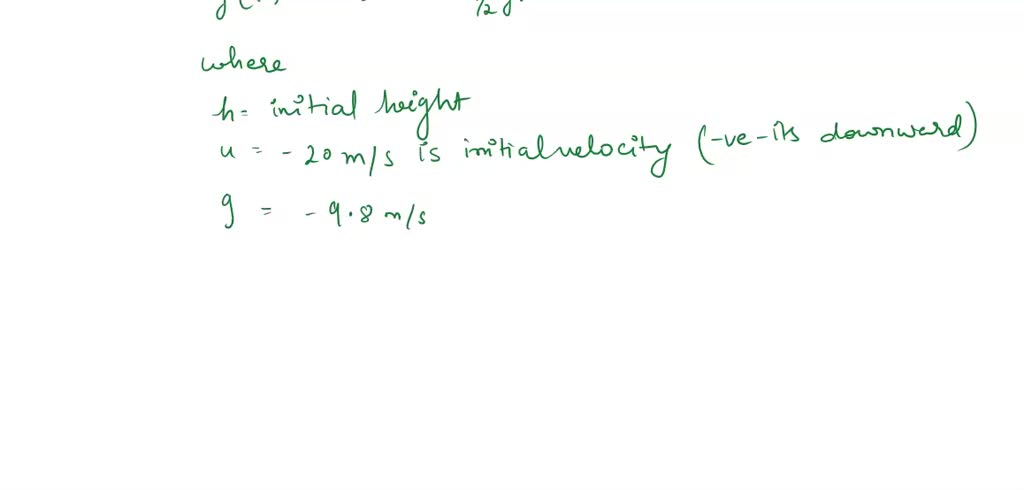 where
h= initial height
u = - 20 m/s is initial velocity (-ve-its downward)
g = - 9.8 m/s